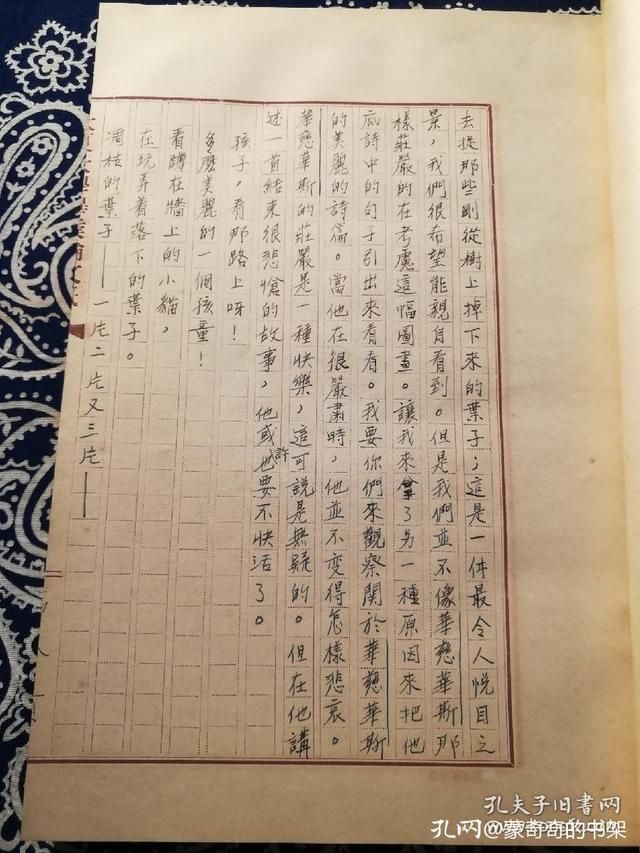 去捉那些剛從樹上掉下來的葉子，這是一件最令人悅目之
景，我們很希望能親自看到。但是我們並不像華慈華斯那
樣莊嚴的在考慮這幅圖畫。讓我來拿了另一種原因來把他
底詩中的句子引出來看看。我要你們來觀察關於華慈華斯
的美麗的詩篇。當他在很嚴肅時，他並不變得怎樣悲哀。
華慈華斯的莊嚴是一種快樂，這可說是無疑的。但在他講
述一首結束很悲愴的故事，他或許也要不快活了。
孩子，看那路上呀！
多麼美麗的一個孩童！
看蹲在牆上的小貓，
在玩弄着落下的葉子。
凋枯的葉子——一片二片又三片——
孔夫子旧书网
孔网@蒙奇奇的书架